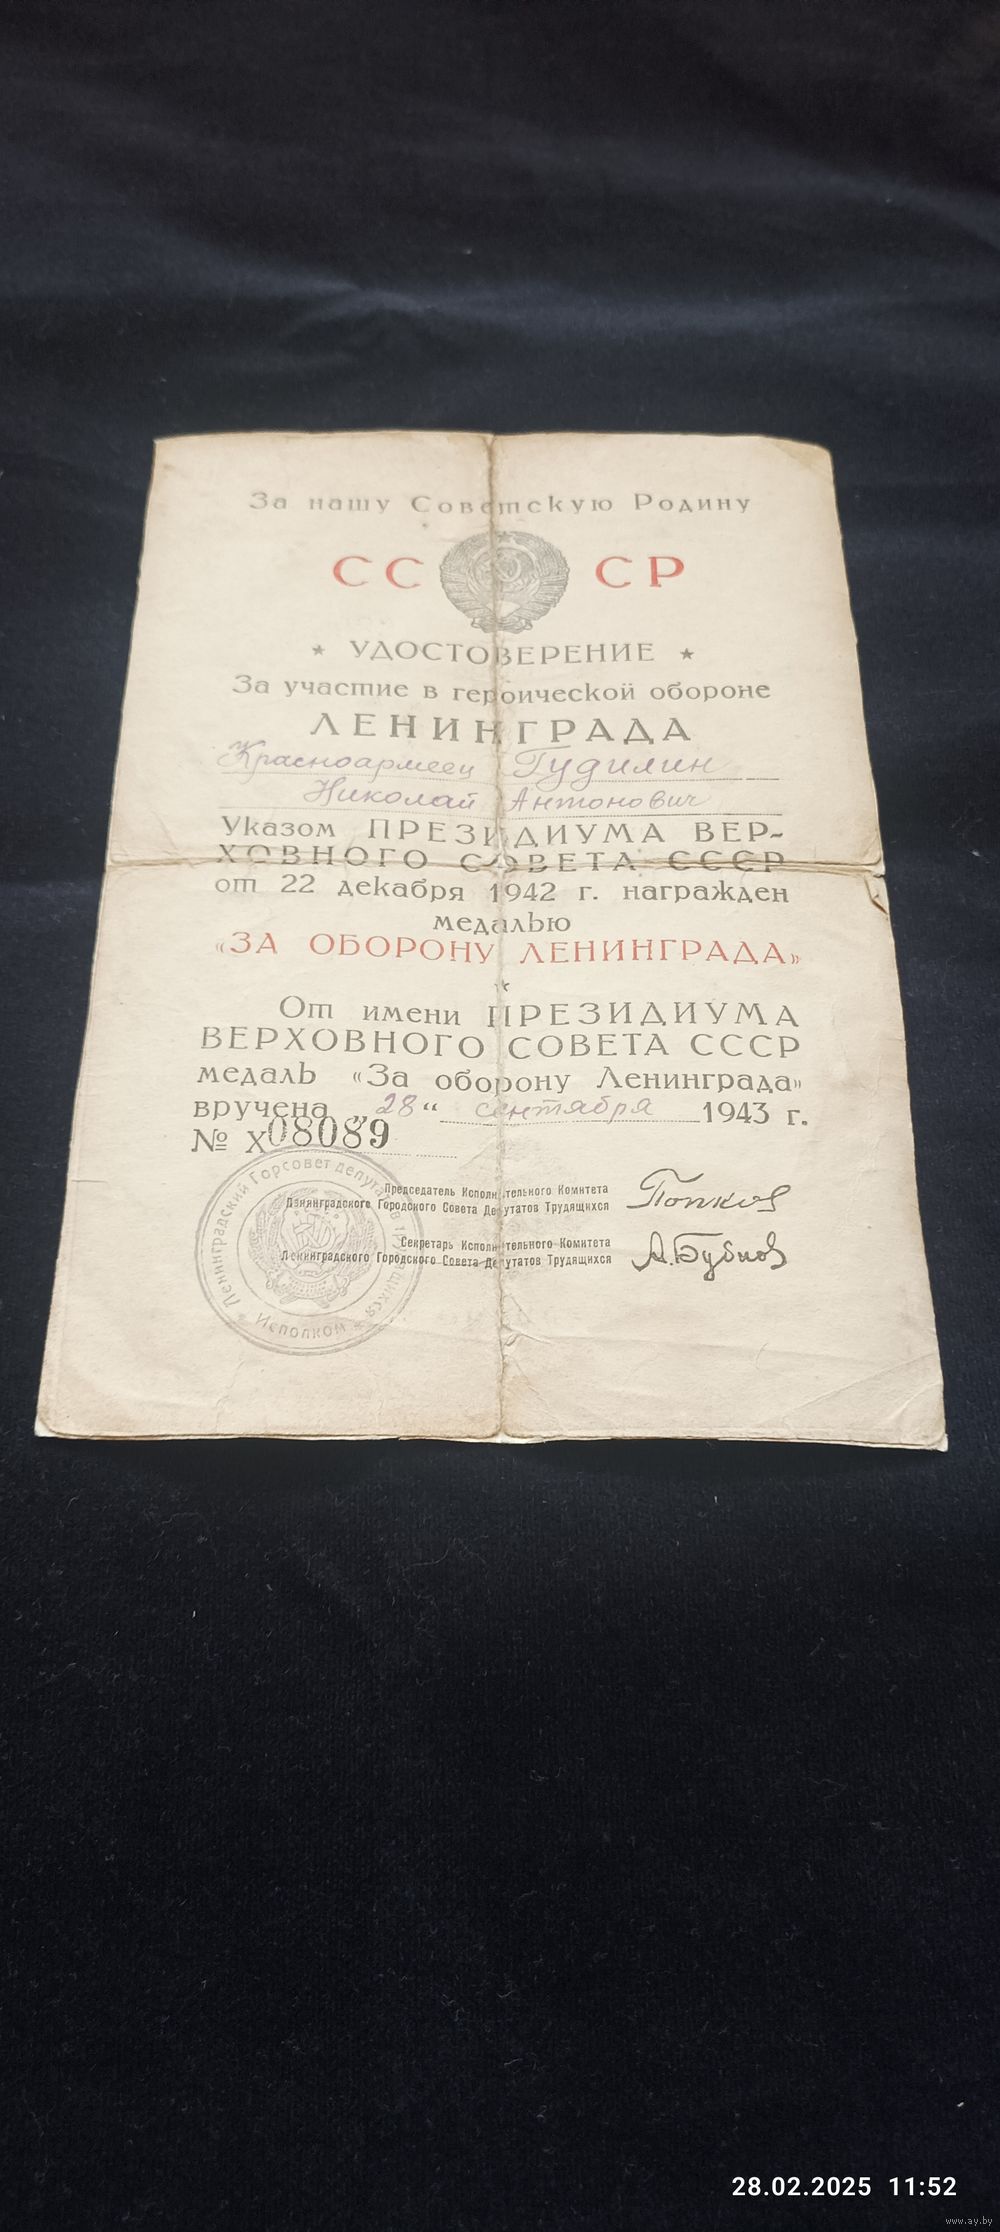 За нашу Советскую Родину
СС СР
★ УДОСТОВЕРЕНИЕ ★
За участие в героической обороне
ЛЕНИНГРАДА
Красноармеец Гудилин
Николай Антонович
Указом ПРЕЗИДИУМА ВЕР-
ХОВНОГО СОВЕТА СССР
от 22 декабря 1942 г. награжден
медалью
«ЗА ОБОРОНУ ЛЕНИНГРАДА»
★
От имени ПРЕЗИДИУМА
ВЕРХОВНОГО СОВЕТА СССР
медаль «За оборону Ленинграда»
вручена „28“ сентября 1943 г.
№ Х08089
Председатель Исполнительного Комитета
Ленинградского Городского Совета Депутатов Трудящихся
Попков
Секретарь Исполнительного Комитета
Ленинградского Городского Совета Депутатов Трудящихся
А. Бубнов
Ленинградский Горсовет депутатов трудящихся
Исполком
28.02.2025 11:52
www.ay.by